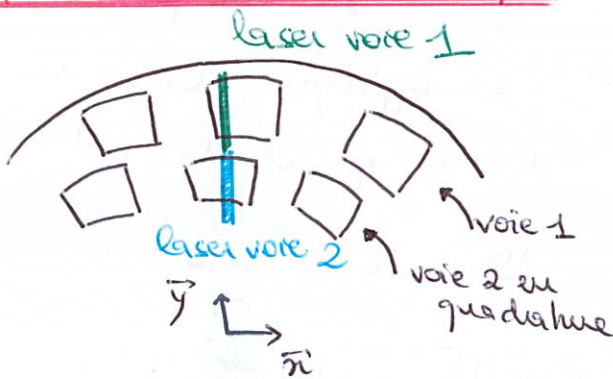 laser voie 1
laser voie 2
voie 1
voie 2 en
quadrature
y
x